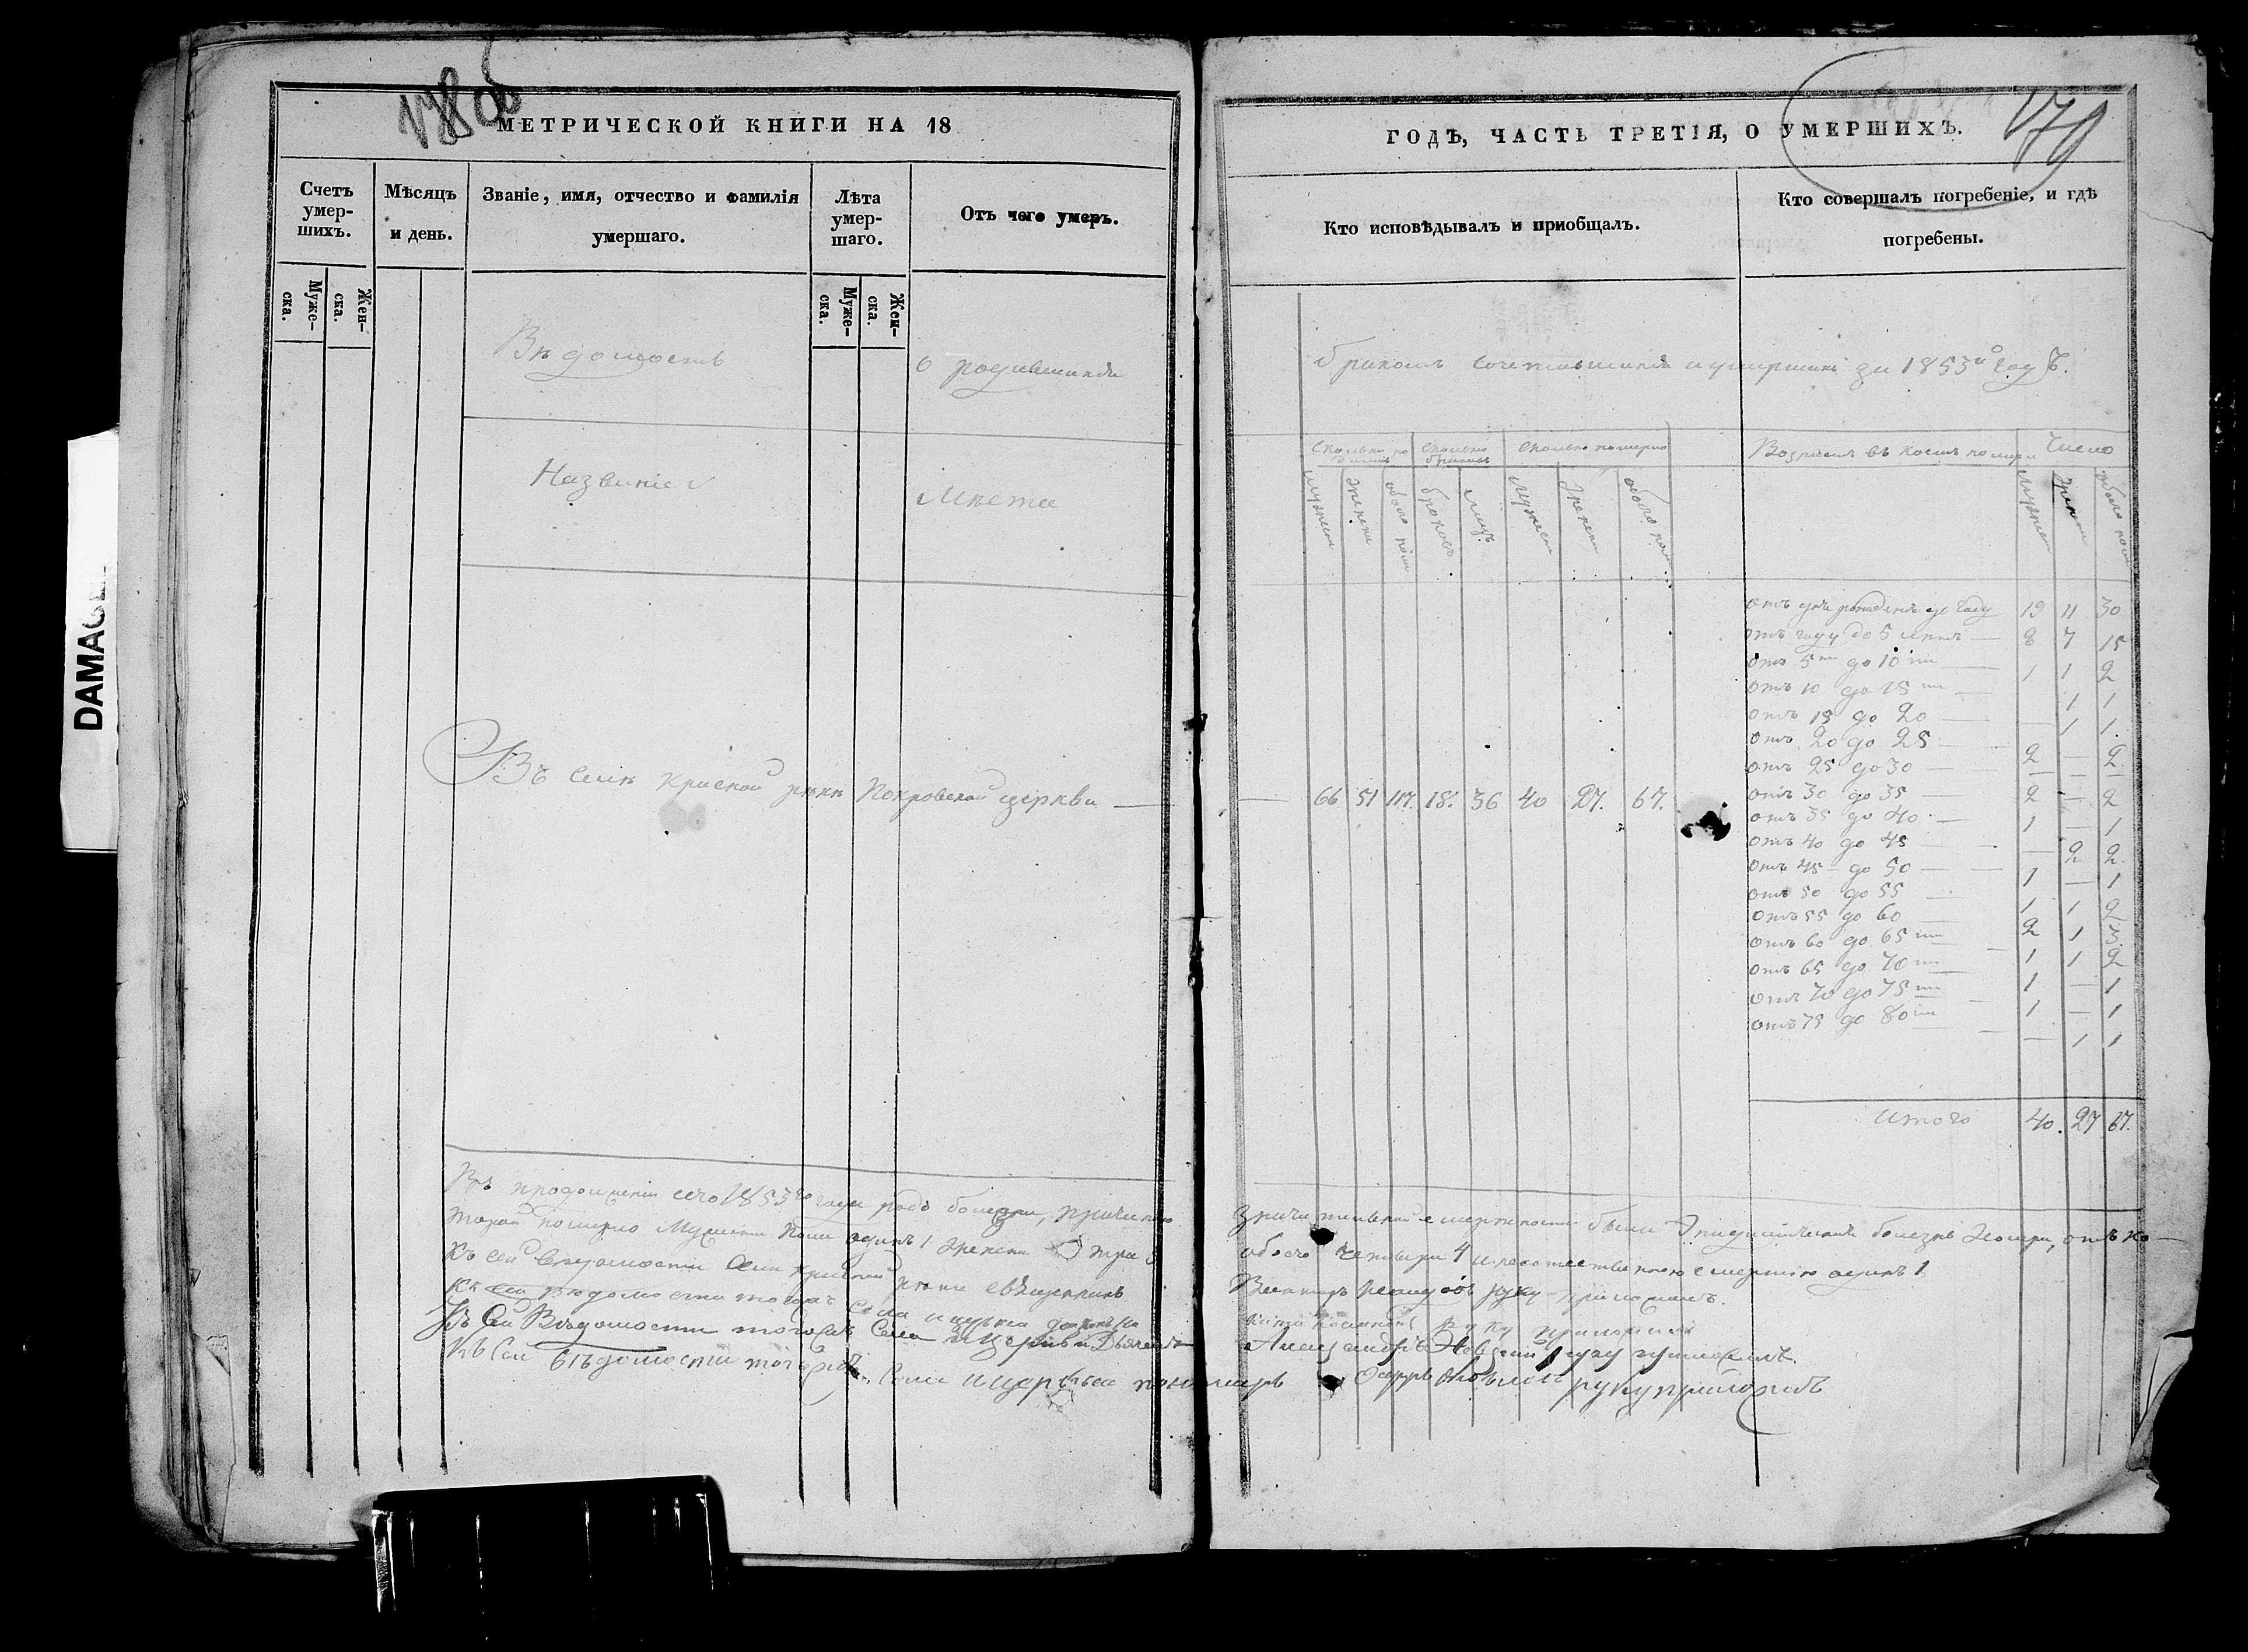 178 об
МЕТРИЧЕСКОЙ КНИГИ НА 18
Счетъ умер-шихъ.
Мѣсяцъ и день.
Званіе, имя, отчество и фамилія умершаго.
Лѣта умер-шаго.
Отъ чего умеръ.
Муже-ска.
Жен-ска.
Муже-ска.
Жен-ска.
Вѣдомость
о родившихся
Названіе
Мѣста
Въ селѣ Красной рѣкѣ Покровской церкви
Въ продолженіи сего 1853го года родъ болезни, причинено
торой померло Мужеска пола одинъ 1 Женска три 3
Къ сей Вѣдомости села Красной рѣки священникъ
Къ сей вѣдомости тогожъ села и церкви
Къ сей Вѣдомости тогожъ села и Церкви Дьячекъ
Къ сей вѣдомости тогожъ села и церкви пономарь
179
ГОДЪ, ЧАСТЬ ТРЕТІЯ, О УМЕРШИХЪ.
Кто исповѣдывалъ и пріобщалъ.
Кто совершалъ погребеніе, и гдѣ погребены.
бракомъ сочетавшихся и умершихъ за 1853й годъ.
Сколько родилось
Сколько браковъ
Сколько померло
Возрастъ въ коемъ померли
Число
мужеска
женска
обоего пола
браковъ
лицъ
мужеска
женска
обоего пола
мужеска
женска
обоего пола
66 51 117. 18. 36 40 27. 67.
отъ дня рожденія до году 19 11 30
отъ году до 5 лѣтъ 8 7 15
отъ 5ти до 10ти 1 1 2
отъ 10 до 15ти 1 1
отъ 15 до 20 — 1 1.
отъ 20 до 25 2 — 2
отъ 25 до 30 — — —
отъ 30 до 35 2 — 2
отъ 35 до 40 1 — 1
отъ 40 до 45 — 2 2
отъ 45 до 50 1 — 1
отъ 50 до 55 1 1 2
отъ 55 до 60 2 1 3
отъ 60 до 65ти 1 1 2
отъ 65 до 70ти 1 — 1
отъ 70 до 75ти 1 — 1
отъ 75 до 80ти — 1 1
Итого 40. 27 67.
смертности были болезнь отъ ко
обоего четыри 4 смертію одинъ 1
руку приложилъ.
руку приложилъ
Александръ руку приложилъ.
руку приложилъ